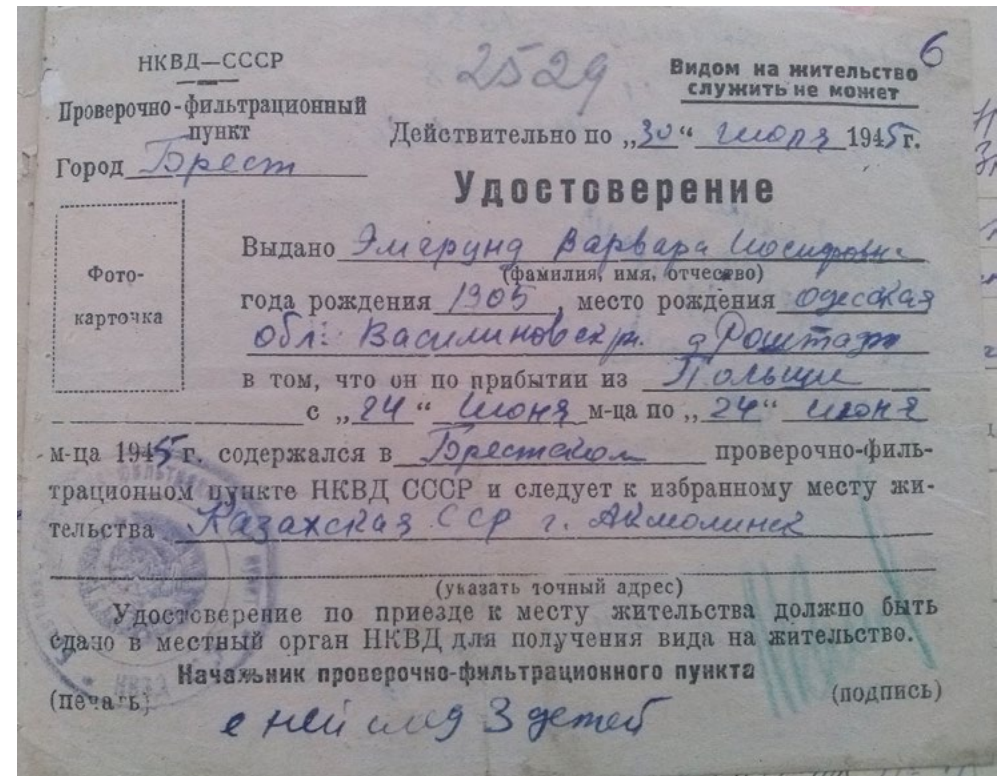 НКВД—СССР
2529
6
Видом на жительство
служить не может
Проверочно-фильтрационный
пункт
Действительно по „30“ июля 1945 г.
Город Брест
Удостоверение
Выдано Эмгрунд Варвара Иосифовна
(фамилия, имя, отчество)
Фото-
карточка
года рождения 1905, место рождения Одесская
обл. Василиновск р. д Роштадт
в том, что он по прибытии из Польши
с „24“ июня м-ца по „24“ июня
м-ца 1945 г. содержался в Брестском проверочно-филь-
трационном пункте НКВД СССР и следует к избранному месту жи-
тельства Казахская ССР г. Акмолинск
(указать точный адрес)
Удостоверение по приезде к месту жительства должно быть
сдано в местный орган НКВД для получения вида на жительство.
Начальник проверочно-фильтрационного пункта
(печать)
(подпись)
с ней след 3 детей
НКВД